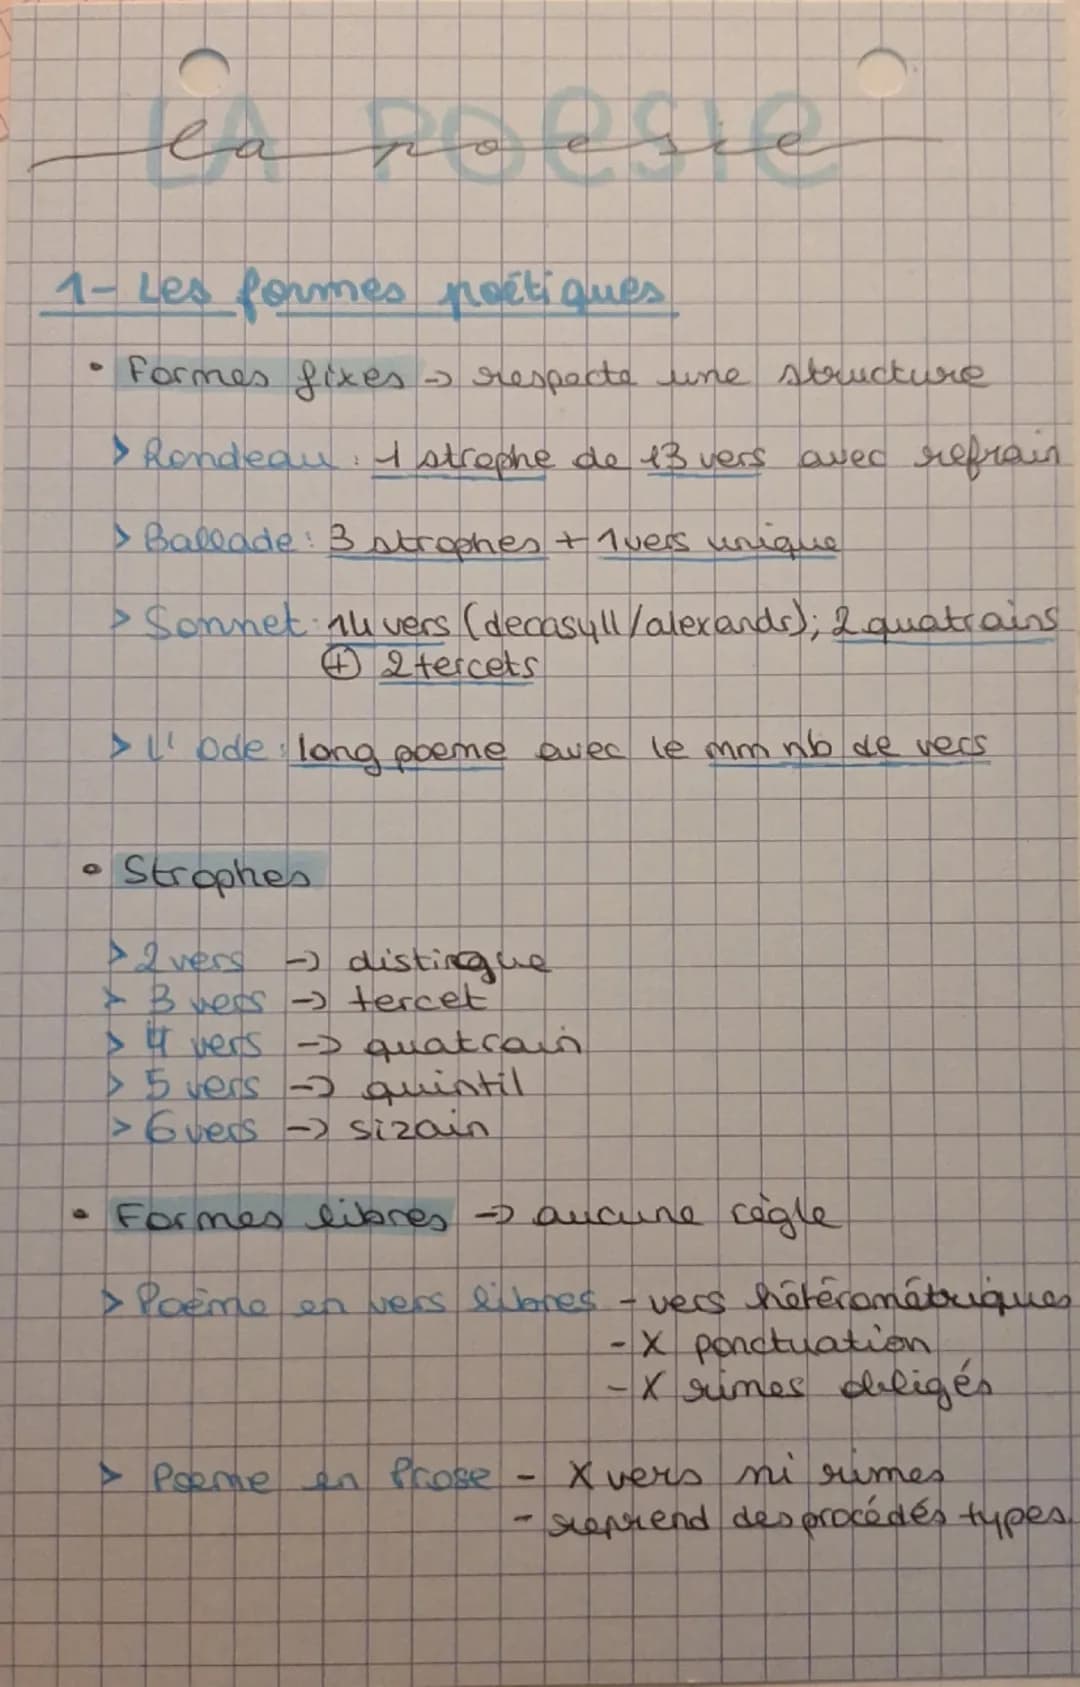 LA POESIE
la poesie
1- Les formes poétiques
• Formes fixes → respecte une structure
> Rondeau : 1 strophe de 13 vers avec refrain
> Ballade : 3 strophes + 1 vers unique
> Sonnet : 14 vers (decasyll/alexandr); 2 quatrains
⊕ 2 tercets
> L'ode : long poeme avec le mm nb de vers
• Strophes
> 2 vers → distingue
> 3 vers → tercet
> 4 vers → quatrain
> 5 vers → quintil
> 6 vers → sizain
• Formes libres → aucune règle
> Poème en vers libres - vers hétérométriques
- X ponctuation
- X rimes obligés
> Poeme en Prose - X vers ni rimes
- reprend des procédés types